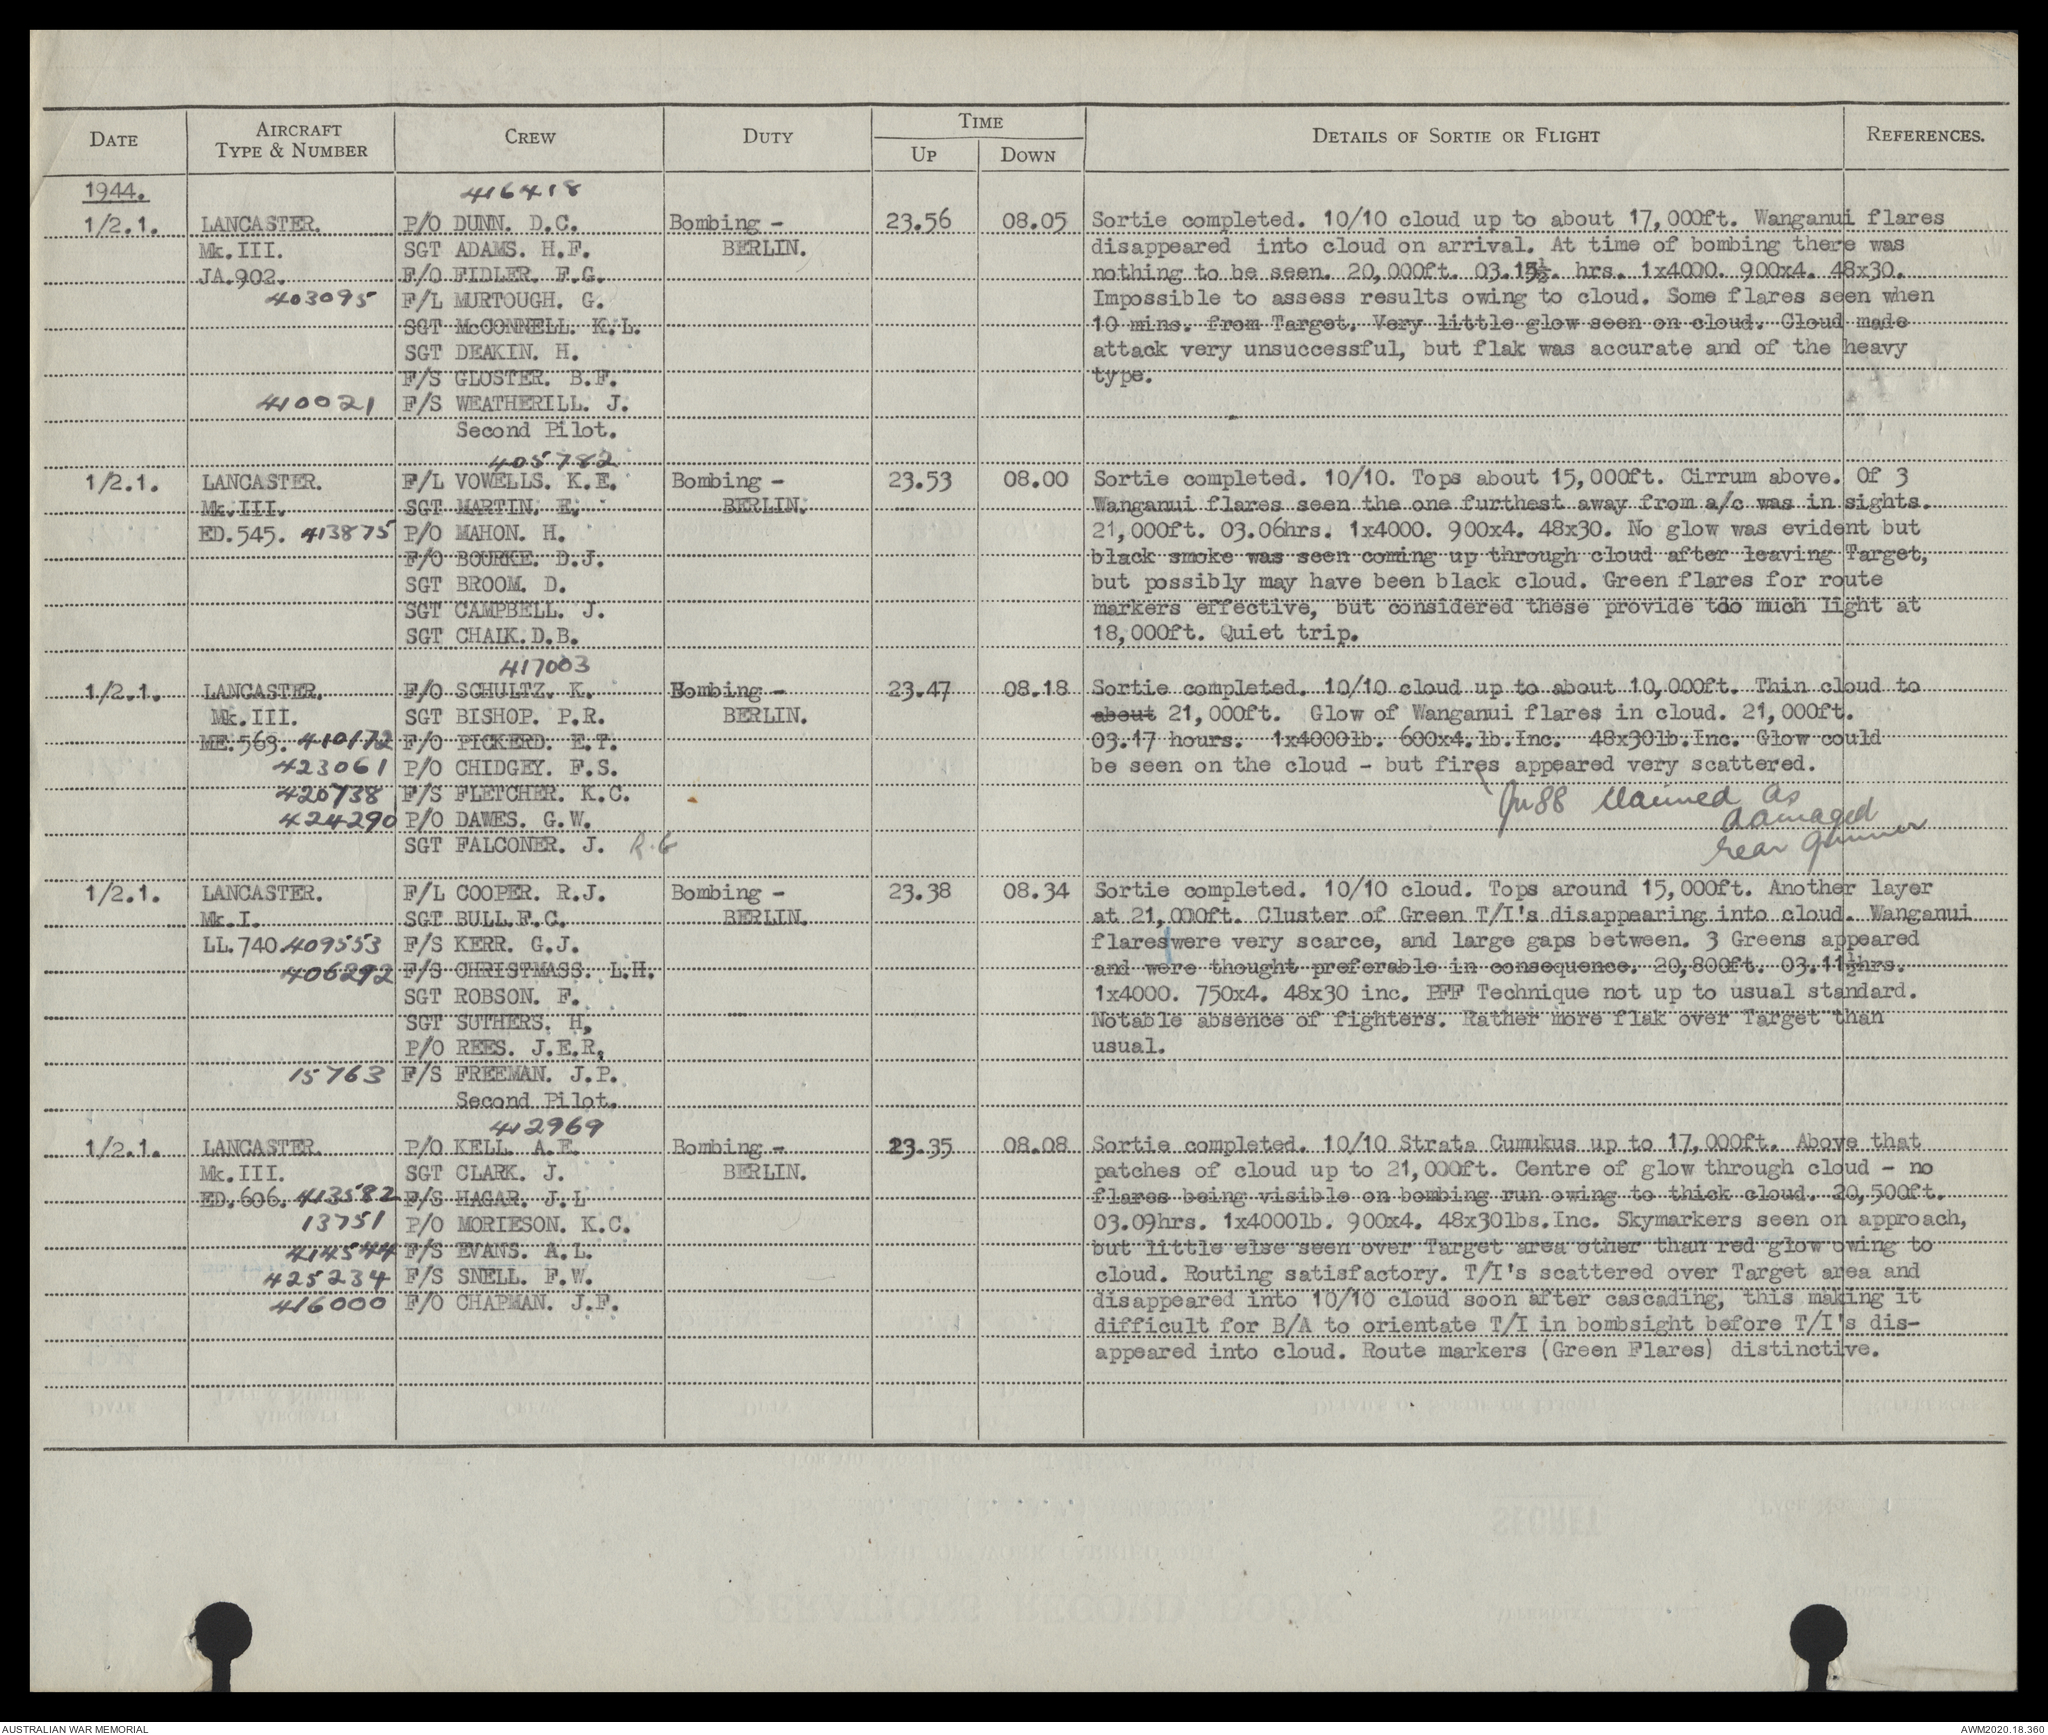 DATE AIRCRAFT TYPE & NUMBER CREW DUTY TIME UP DOWN DETAILS OF SORTIE OR FLIGHT REFERENCES.
1944. 416418
1/2.1. LANCASTER. P/O DUNN. D.C. Bombing - 23.56 08.05 Sortie completed. 10/10 cloud up to about 17,000ft. Wanganui flares
Mk.III. SGT ADAMS. H.F. BERLIN. disappeared into cloud on arrival. At time of bombing there was
JA.902. F/O FIDLER. F.G. nothing to be seen. 20,000ft. 03.15½. hrs. 1x4000. 900x4. 48x30.
403095 F/L MURTOUGH. G. Impossible to assess results owing to cloud. Some flares seen when
SGT McCONNELL. K.L. 10 mins. from Target. Very little glow seen on cloud. Cloud made
SGT DEAKIN. H. attack very unsuccessful, but flak was accurate and of the heavy
F/S GLOSTER. B.F. type.
410021 F/S WEATHERILL. J.
Second Pilot.
405782
1/2.1. LANCASTER. F/L VOWELLS. K.E. Bombing - 23.53 08.00 Sortie completed. 10/10. Tops about 15,000ft. Cirrum above. Of 3
Mk.III. SGT MARTIN. E. BERLIN. Wanganui flares seen the one furthest away from a/c was in sights.
ED.545. 413875 P/O MAHON. H. 21,000ft. 03.06hrs. 1x4000. 900x4. 48x30. No glow was evident but
F/O BOURKE. D.J. black smoke was seen coming up through cloud after leaving Target,
SGT BROOM. D. but possibly may have been black cloud. Green flares for route
SGT CAMPBELL. J. markers effective, but considered these provide too much light at
SGT CHALK.D.B. 18,000ft. Quiet trip.
417003
1/2.1. LANCASTER. F/O SCHULTZ. K. Bombing - 23.47 08.18 Sortie completed. 10/10 cloud up to about 10,000ft. Thin cloud to
Mk.III. SGT BISHOP. P.R. BERLIN. about 21,000ft. Glow of Wanganui flares in cloud. 21,000ft.
ME.563. 410172 F/O PICKERD. E.T. 03.17 hours. 1x4000lb. 600x4.lb.Inc. 48x30lb.Inc. Glow could
423061 P/O CHIDGEY. F.S. be seen on the cloud - but fires appeared very scattered.
420738 F/S FLETCHER. K.C. Ju88 claimed as
424290 P/O DAWES. G.W. damaged
SGT FALCONER. J. R.G rear gunner
1/2.1. LANCASTER. F/L COOPER. R.J. Bombing - 23.38 08.34 Sortie completed. 10/10 cloud. Tops around 15,000ft. Another layer
Mk.I. SGT BULL.F.C. BERLIN. at 21,000ft. Cluster of Green T/I's disappearing into cloud. Wanganui
LL.740 409553 F/S KERR. G.J. flares were very scarce, and large gaps between. 3 Greens appeared
406292 F/S CHRISTMASS. L.H. and were thought preferable in consequence. 20,800ft. 03.11½hrs.
SGT ROBSON. F. 1x4000. 750x4. 48x30 inc. PFF Technique not up to usual standard.
SGT SUTHERS. H, Notable absence of fighters. Rather more flak over Target than
P/O REES. J.E.R, usual.
15763 F/S FREEMAN. J.P.
Second Pilot.
412969
1/2.1. LANCASTER. P/O KELL. A.E. Bombing - 23.35 08.08 Sortie completed. 10/10 Strata Cumukus up to 17,000ft. Above that
Mk.III. SGT CLARK. J. BERLIN. patches of cloud up to 21,000ft. Centre of glow through cloud - no
ED.606. 413582 F/S HAGAR. J.L flares being visible on bombing run owing to thick cloud. 20,500ft.
13751 P/O MORIESON. K.C. 03.09hrs. 1x4000lb. 900x4. 48x30lbs.Inc. Skymarkers seen on approach,
414544 F/S EVANS. A.L. but little else seen over Target area other than red glow owing to
425234 F/S SNELL. F.W. cloud. Routing satisfactory. T/I's scattered over Target area and
416000 F/O CHAPMAN. J.F. disappeared into 10/10 cloud soon after cascading, this making it
difficult for B/A to orientate T/I in bombsight before T/I's dis-
appeared into cloud. Route markers (Green Flares) distinctive.
AUSTRALIAN WAR MEMORIAL AWM2020.18.360